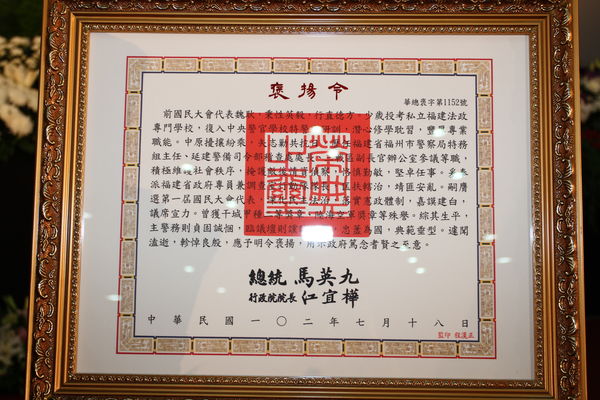 褒揚令
華總褒字第1152號
前國民大會代表魏耿，秉性英毅，行直德方。少歲投考私立福建法政
專門學校，復入中央警官學校特警
研訓，潛心修學耽習，豐
專業
職能。中原擾攘紛乘，矢志勤共抗
福建省福州市警察局特務
組主任，延建警備司令部稽查處處長
戰區副長官辦公室參議等職，
積極維
社會秩序，掩護
慎勤敏，堅卓任事。
派福建省政府專員兼調查
扶轄治，靖匪安亂。嗣膺
選第一屆國民大會代表，
實憲政體制，嘉謨建白，
議席宣力。曾獲干城甲種
獎章等殊譽。綜其生平，
主警務則貞固誠悃，臨議壇則讜
忠藎為國，典範垂型。遽聞
溘逝，軫悼良殷，應予明令褒揚，用示政府篤念耆賢之至意。
總統 馬英九
行政院院長 江宜樺
中華民國一〇二年七月十八日
監印 程漢正